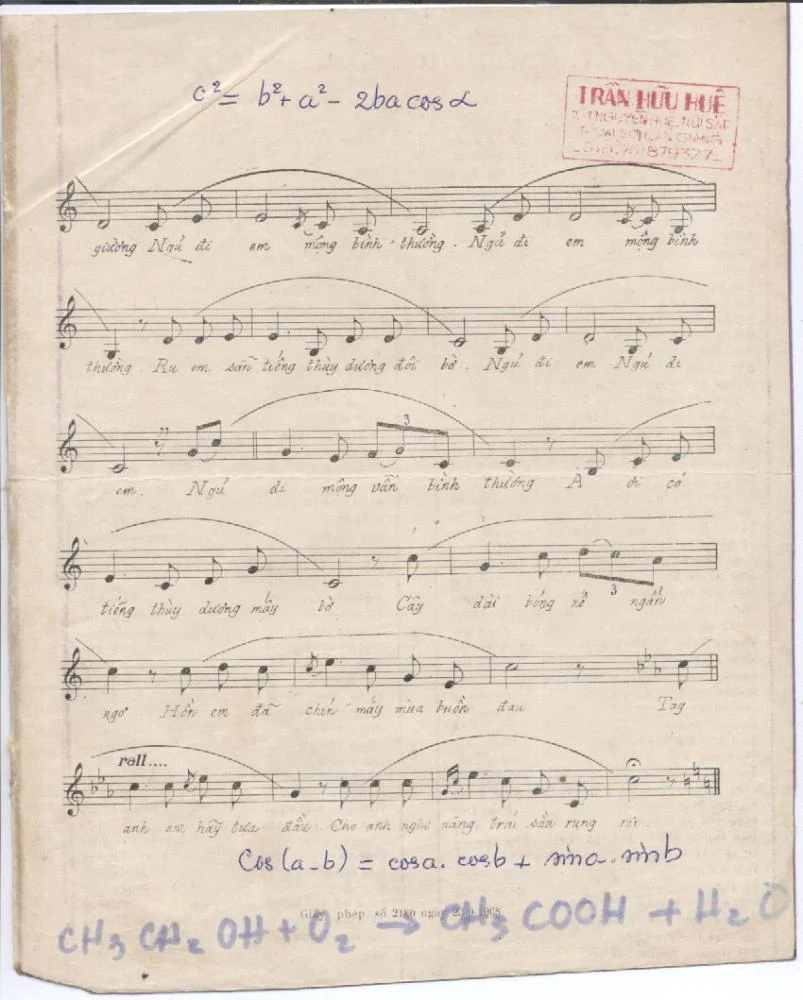 c² = b² + a² - 2ba cos α
TRẦN HỮU HUÊ
giường Ngủ đi em mộng bình thường. Ngủ đi em mộng bình
thường. Ru em sẵn tiếng thùy dương đôi bờ. Ngủ đi em Ngủ đi
em. Ngủ đi mộng vẫn bình thường À ơi có
tiếng thùy dương mấy bờ Cây dài bóng xế ngẩn
ngơ Hồn em đã chín mấy mùa buồn đau Tay
rall....
anh em hãy tựa đầu. Cho anh nghe nặng trái sầu rụng rơi.
Cos(a-b) = cosa. cosb + sina. sinb
Giấy phép số 2180 ngày 23.9.1968
CH₃CH₂OH + O₂ → CH₃COOH + H₂O